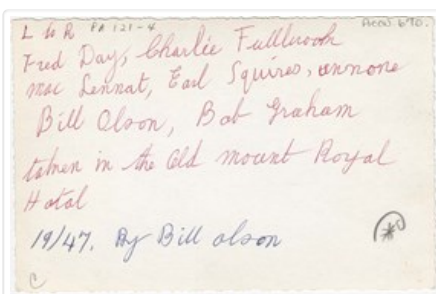 L to R PA 121-4 Accn. 690.
Fred Day, Charlie Fullbrook
mac Lennat, Earl Squires, unnone
Bill Olson, Bob Graham
taken in the Old mount Royal
Hotal
19/47. By Bill olson
C